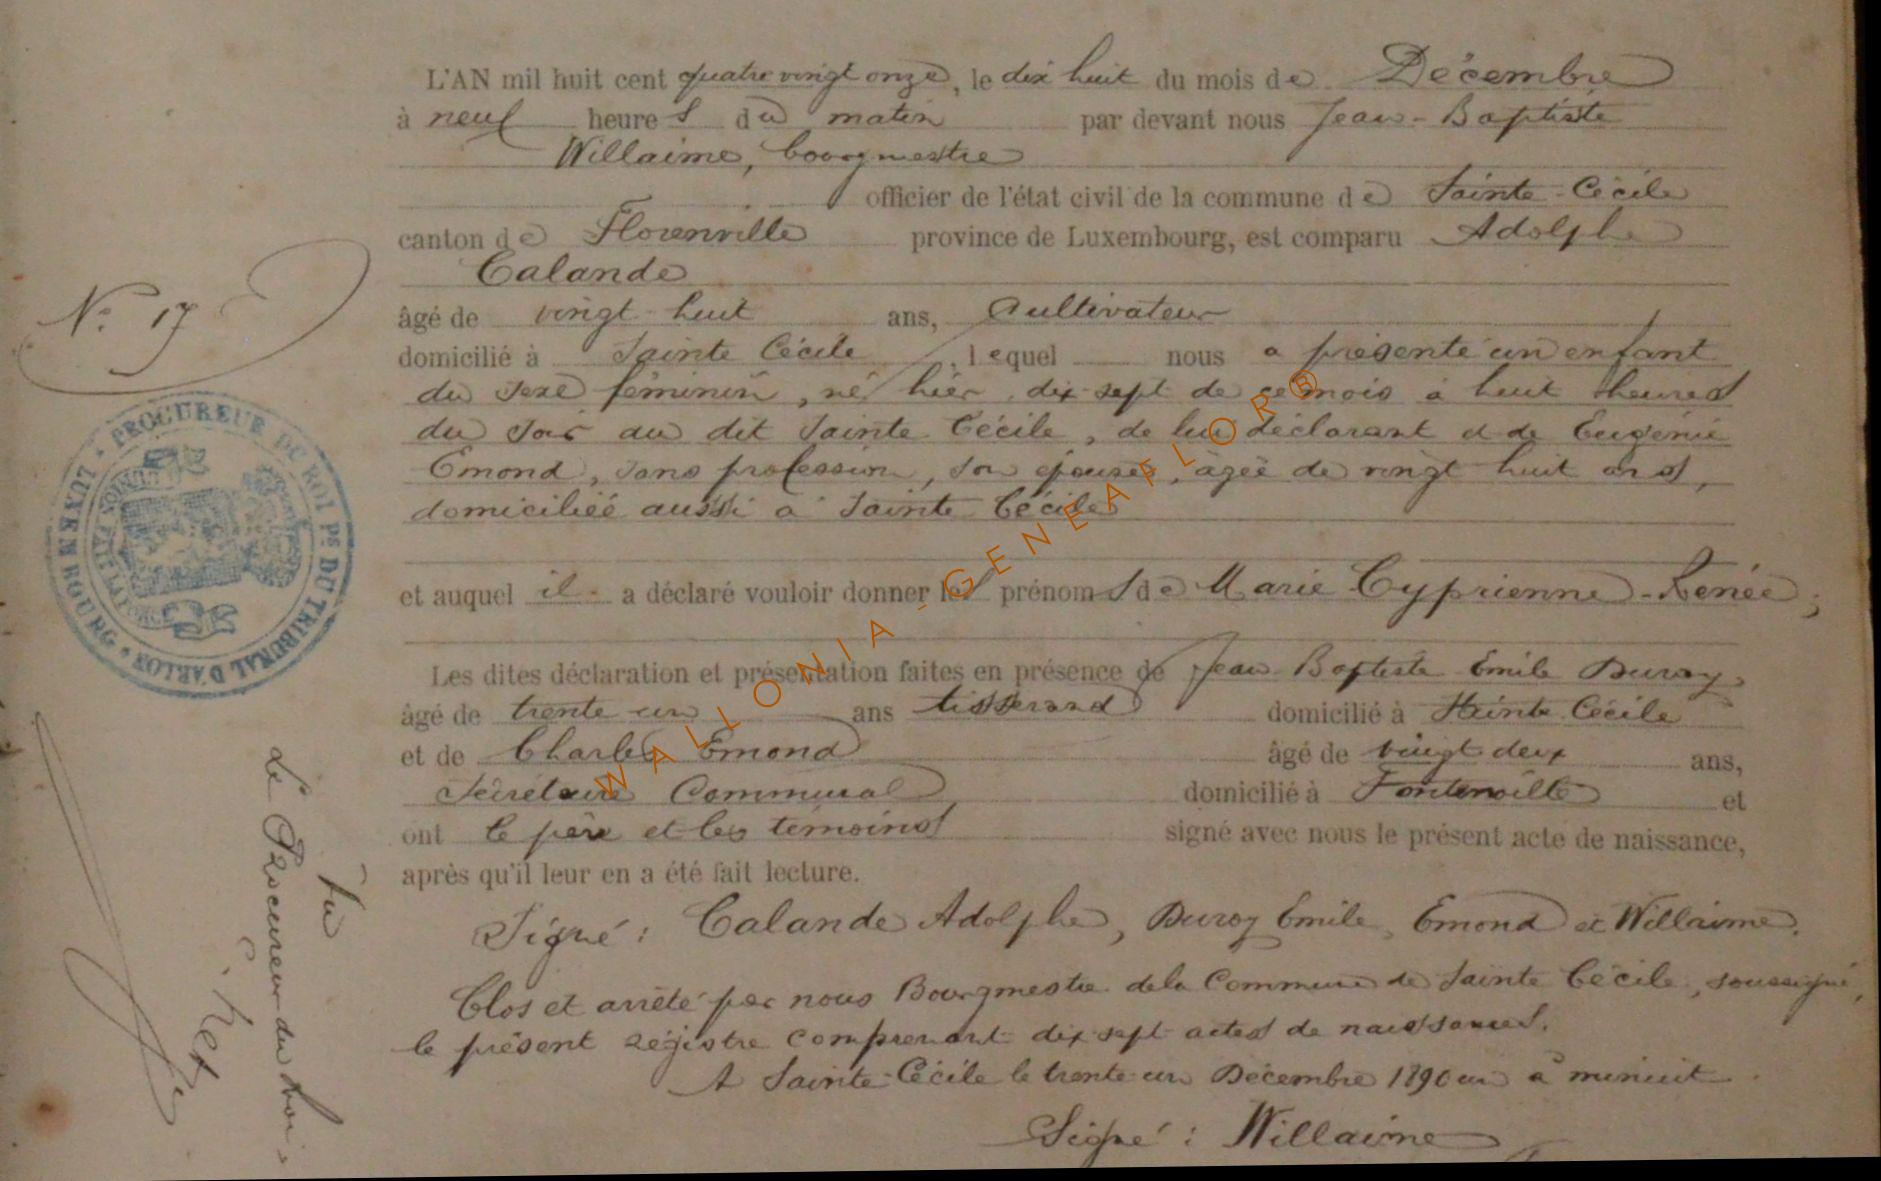 L'AN mil huit cent quatre vingt onze, le dix huit du mois de Décembre
à neuf heures du matin par devant nous Jean-Baptiste
Willaime, bourgmestre
officier de l'état civil de la commune de Sainte-Cécile
canton de Florenville province de Luxembourg, est comparu Adolphe
Calande
N° 17
âgé de vingt-huit ans, Cultivateur
domicilié à Sainte Cécile, lequel nous a présenté un enfant
du sexe féminin, né hier, dix-sept de ce mois à huit heures
du soir au dit Sainte Cécile, de lui déclarant et de Eugénie
Emond, sans profession, son épouse, âgée de vingt huit ans,
domiciliée aussi à Sainte Cécile
et auquel il a déclaré vouloir donner les prénoms de Marie-Cyprienne-Renée;
Les dites déclaration et présentation faites en présence de Jean Baptiste Emile Duroy,
âgé de trente un ans tisserand domicilié à Sainte Cécile
et de Charles Emond âgé de vingt deux ans,
Secrétaire Communal domicilié à Fontenoille et
ont le père et les témoins signé avec nous le présent acte de naissance,
après qu'il leur en a été fait lecture.
Signé: Calande Adolphe, Duroy Emile, Emond et Willaime.
Clos et arrêté par nous Bourgmestre de la Commune de Sainte Cécile, soussigné,
le présent régistre comprenant dix-sept actes de naissances.
A Sainte-Cécile le trente-un Décembre 1890un à minuit.
Signé: Willaime
PROCUREUR DU ROI PS DU TRIBUNAL D'ARLON
LUXEMBOURG
L'UNION FAIT LA FORCE
Vu
Le Procureur du Roi
WALLONIA-GENEAFLOR®